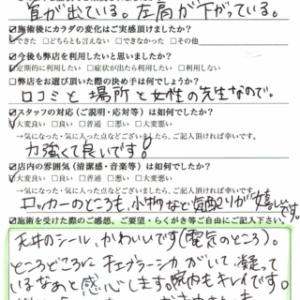 首が出ている。左肩が下がっている。
■施術後にカラダの変化はご実感頂けましたか？
☑できた □どちらとも言えない □できなかった □その他
■今後も弊店を利用したいと思いましたか？
☑定期的に利用したい □症状が出たら利用したい □利用したくない
□弊店をお選び頂いた際の決め手は何でしょうか？
口コミと場所と女性の先生なので。
■スタッフの対応（ご説明・応対等）は如何でしたか？
☑大変良い □良い □普通 □悪い □大変悪い
→気になった・気に入った点などございましたら、ご記入頂ければ幸いです。
力強くて良いです!
■店内の雰囲気（清潔感・音楽等）は如何でしたか？
☑大変良い □良い □普通 □悪い □大変悪い
→気になった・気に入った点などございましたら、ご記入頂ければ幸いです。
ロッカーのところも、小物など気配りが嬉しいです。
■施術を受けた際のご感想、ご要望・らくがき等ご自由にご記入下さい。
天井のシール、かわいいです（電気のところ）。
ところどころにチェブラーシカがいて、凝って
いるなあて感心します。院内もキレイです。